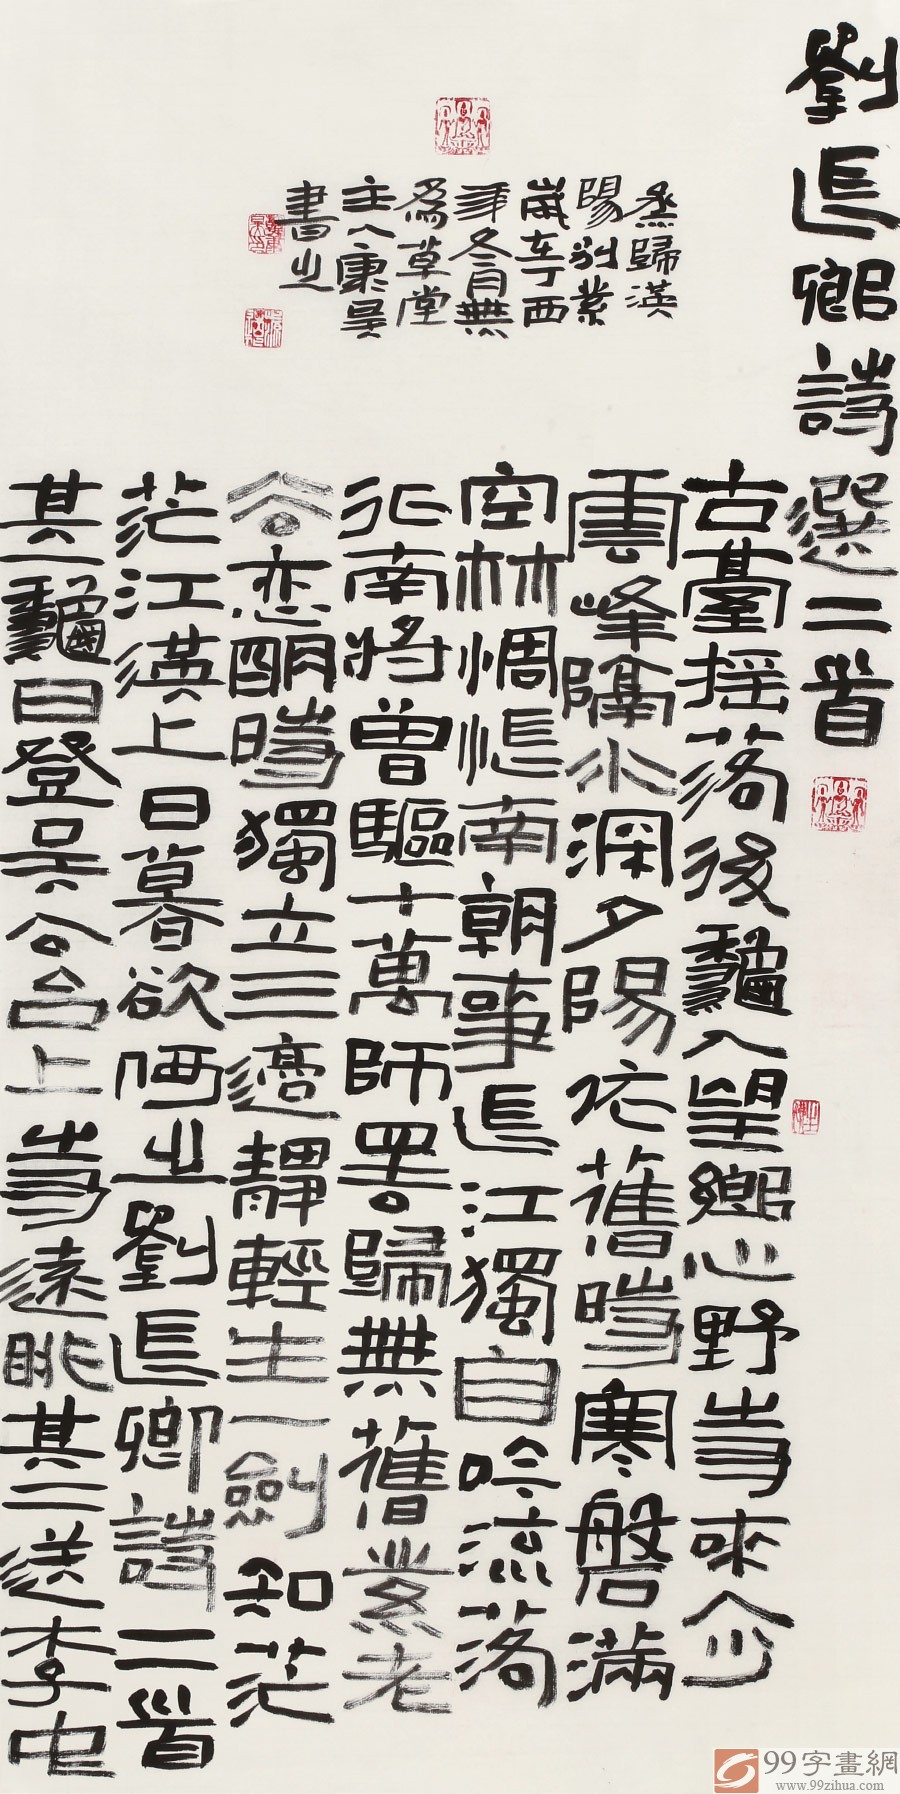 劉長卿詩選二首
古臺搖落後龝入望鄉心野寺來人少
雲峰隔水深夕陽依舊時寒磬滿
空林惆悵南朝事長江獨自吟流落
征南將曾驅十萬師罢歸無舊業老
去恋明時獨立三邊靜輕生一劍知茫
茫江漢上日暮欲何之劉長卿詩二首
其一龝日登吳公台上寺遠眺其二送李中
丞歸漢
陽別業
歲在丁酉
年冬月無
為草堂
主人康
書之
99字畫網
www.99zihua.com